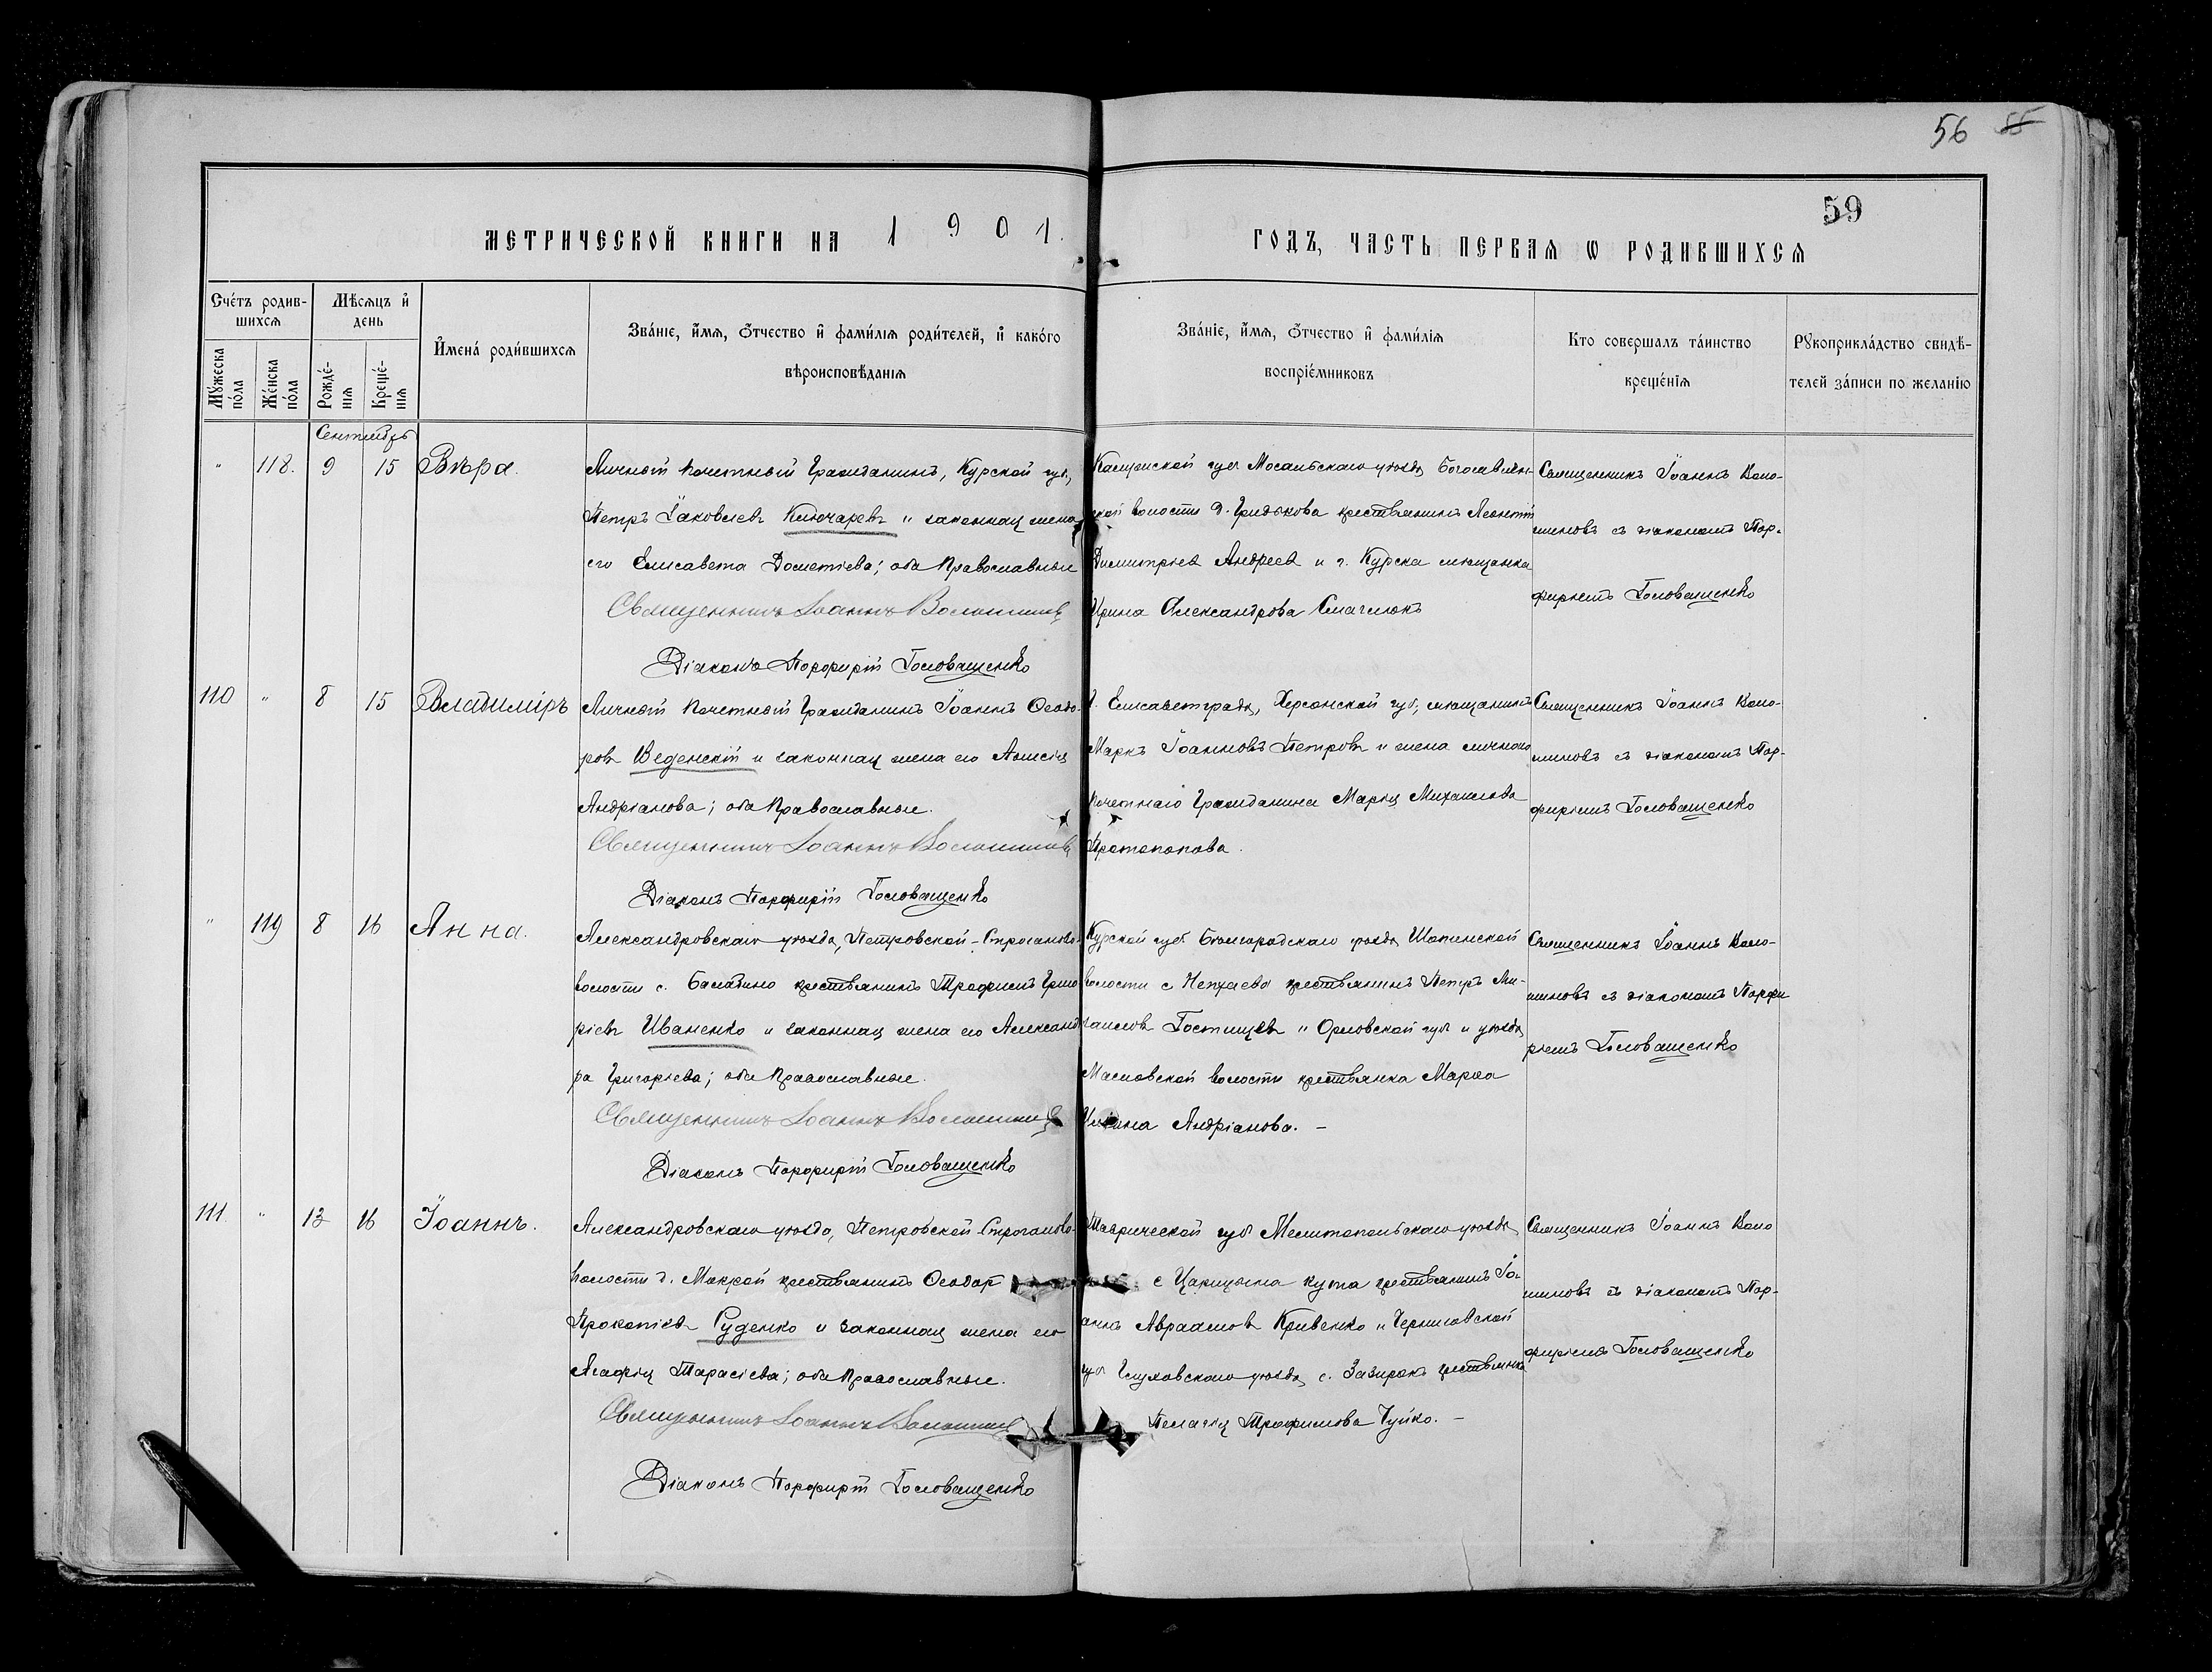 56 55
59
МЕТРИЧЕСКОЙ КНИГИ НА 1901.
ГОДЪ, ЧАСТЬ ПЕРВАЯ Ѡ РОДИВШИХСѦ
Сче́тъ родив-
шихсѧ
Мѣсѧцъ и҆
день
Мꙋ́жеска
по́ла
Же́нска
по́ла
Рожде́-
нїѧ
Креще́-
нїѧ
И҆мена̀ роди́вшихсѧ
Зва́нїе, и҆́мѧ, ѻ҆́тчество и҆ фами́лїѧ роди́телей, и҆ како́гѡ
вѣроисповѣ́данїѧ
Зва́нїе, и҆́мѧ, ѻ҆́тчество и҆ фами́лїѧ
воспрїе́мниковъ
Кто совершалъ та́инство
креще́нїѧ
Рꙋкоприкла́дство свидѣ́-
телей за́писи по жела́нїю
Сентябрь
" 118. 9 15 Вѣра.
Личный почетный Гражданинъ, Курской губ.,
Петръ Іаковлевъ Ключаревъ и законная жена
его Елисавета Дометіева; оба Православные
Священникъ Іоаннъ Волошинов
Діаконъ Порфирій Головащенко
Калужской губ Мосальскаго уѣзда Богоявлен-
ской волости д. Гридякова крестьянинъ Леонтій
Димитріев Андреев и г. Курска мѣщанка
Ирина Александрова
Священникъ Іоаннъ Воло-
шиновъ съ діакономъ Пор-
фиріемъ Головащенко
110 " 8 15 Владиміръ
Личный Почетный Гражданинъ Іоаннъ Ѳеодо-
ровъ Веденскій и законная жена его Алисія
Андріанова; оба Православные.
Священникъ Іоаннъ Волошинов
Діаконъ Порфирій Головащенко
г. Елисаветграда, Херсонской губ, мѣщанинъ
Маркъ Іоанновъ Петровъ и жена личнаго
почетнаго Гражданина Марія Михаилова
Протопопова.
Священникъ Іоаннъ Воло-
шиновъ съ діакономъ Пор-
фиріемъ Головащенко
" 119 8 16 Анна.
Александровскаго уѣзда, Петровской-Строганово-
волости с. Балабино крестьянинъ Трофимъ Григо
ріевъ Иваненко и законная жена его Александ
ра Григорьева; оба Православные.
Священникъ Іоаннъ Волошинов
Діаконъ Порфирій Головащенко
Курской губ Бѣлгородскаго уѣзда Шопинской
волости с Нехаева крестьянинъ Петръ Ми-
хаилов Гостищев и Орловской губ и уѣзда
Масловской волости крестьянка Марѳа
Андріанова. -
Священникъ Іоаннъ Воло-
шиновъ съ діакономъ Порфи
ріемъ Головащенко
111. " 13 16 Іоаннъ.
Александровскаго уѣзда, Петровской-Строганово-
волости д. Мокрой крестьянинъ Ѳеодор
Прокопіевъ Руденко и законная жена его
Агафія Тарасіева; оба Православные.
Священникъ Іоаннъ Волошинов
Діаконъ Порфирій Головащенко
Таврической губ Мелитопольскаго уѣзда
с Царицына кута крестьянинъ Іо-
аннъ Авраамов Кривенко и Черниговской
губ Глуховскаго уѣзда, с. Зазирокъ крестьянка
Пелагія Трофимова Чуйко. -
Священникъ Іоаннъ Воло
шиновъ съ діакономъ Пор-
фиріемъ Головащенко